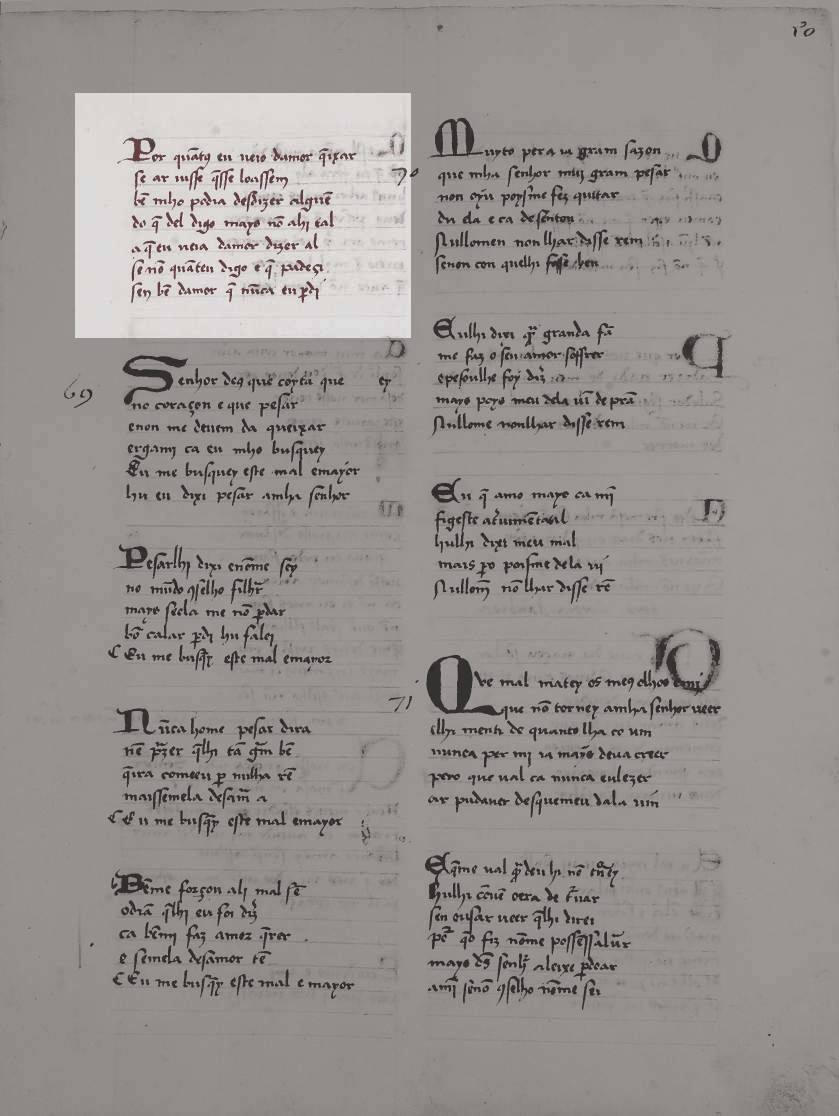 Por quãtq̃ eu veio damor q̃ixar
se ar visse q̃sse loassem
bẽ mho podia desdizer alguẽ
do q̃ del digo mayo nõ ahi tal
a q̃ eu veia damor dizer al
se nõ quãteu digo e q̃ padeçi
sen bẽ damor q̃ nũca eu ꝑdi
69
Senhor deꝯ que coyta que ey
no coraçon e que pesar
enon me deuem da queixar
ergami ca eu mho busquey
Eu me busquey este mal emayor
hu eu dixi pesar amha senhor
Pesarlhi dixi enõme sey
no mũdo ꝯselho filhr̃
mayo seela me nõ ꝑdar
bõ calar ꝑdi hu falei
C Eu me busq̃y este mal emayoz
Nũca home pesar dira
nẽ pr̃zer q̃lhi tã gr̃m bẽ
q̃ira comeeu ꝑ milha rẽ
maissemela desam̃ a
C Eu me busq̃y este mal emayor
Bẽme forçon ali mal sẽ
odiã q̃lhi eu foi diz̃
ca bẽmi faz amoz q̃rer
e semela desamor tẽ
C Eu me busq̃y este mal e mayor
70
Muyto per a ia gram sazon
que mha senhor mui gram pesar
non oyu poysme fez quitar
du ela e ca desenton
Nullomen non lhar disse rem
senon con quelhi fosse ben
Eulhi dixi q̃ granda fã
me faz o seu amor soffrer
epesoulhe foy diz̃
mayo poys meu dela uĩ de prã
Nullome nonlhar disse rem
Eu q̃ amo mayo ca mĩ
figeste
hulhi dixi meu mal
mais ꝑo poisme dela vij
Nullom̃ nõ lhar disse rẽ
71
Que mal matey os meꝯ olhos emi
que nõ torney amha senhor veer
elhi menti de quanto lha co um
nunca per mi ia mayo deua creer
pero que ual ca nunca eulezer
ar pudauer desquemeu dala uim
Eq̃me val
hulhi cõuẽ oera de
sen ousar veer q̃lhi direi
q̃o fiz nõme
mayo dꝯ senhr̃ aleixe ꝑdoar
amĩ senõ ꝯselho nõme sei